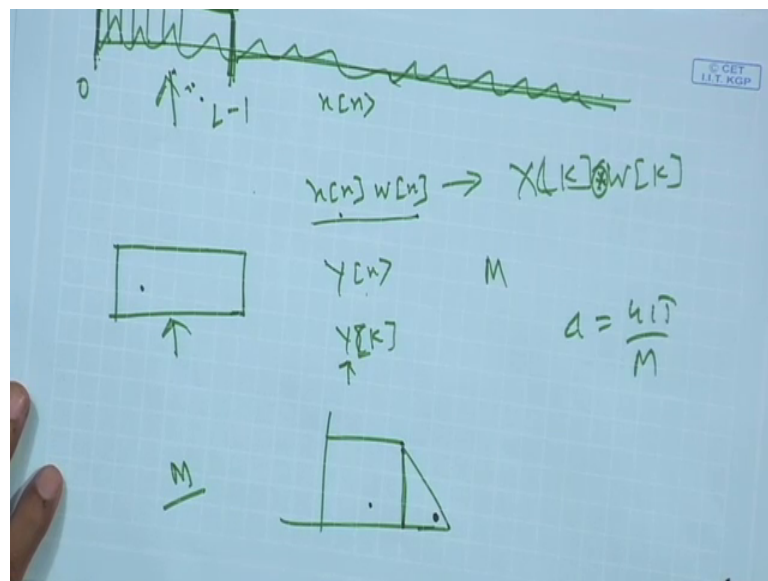 © CET
I.I.T. KGP
0
L-1
x[n]
x[n] w[n] → X[K] ⊛ W[K]
Y[n]
M
a = 4π/M
Y[K]
M